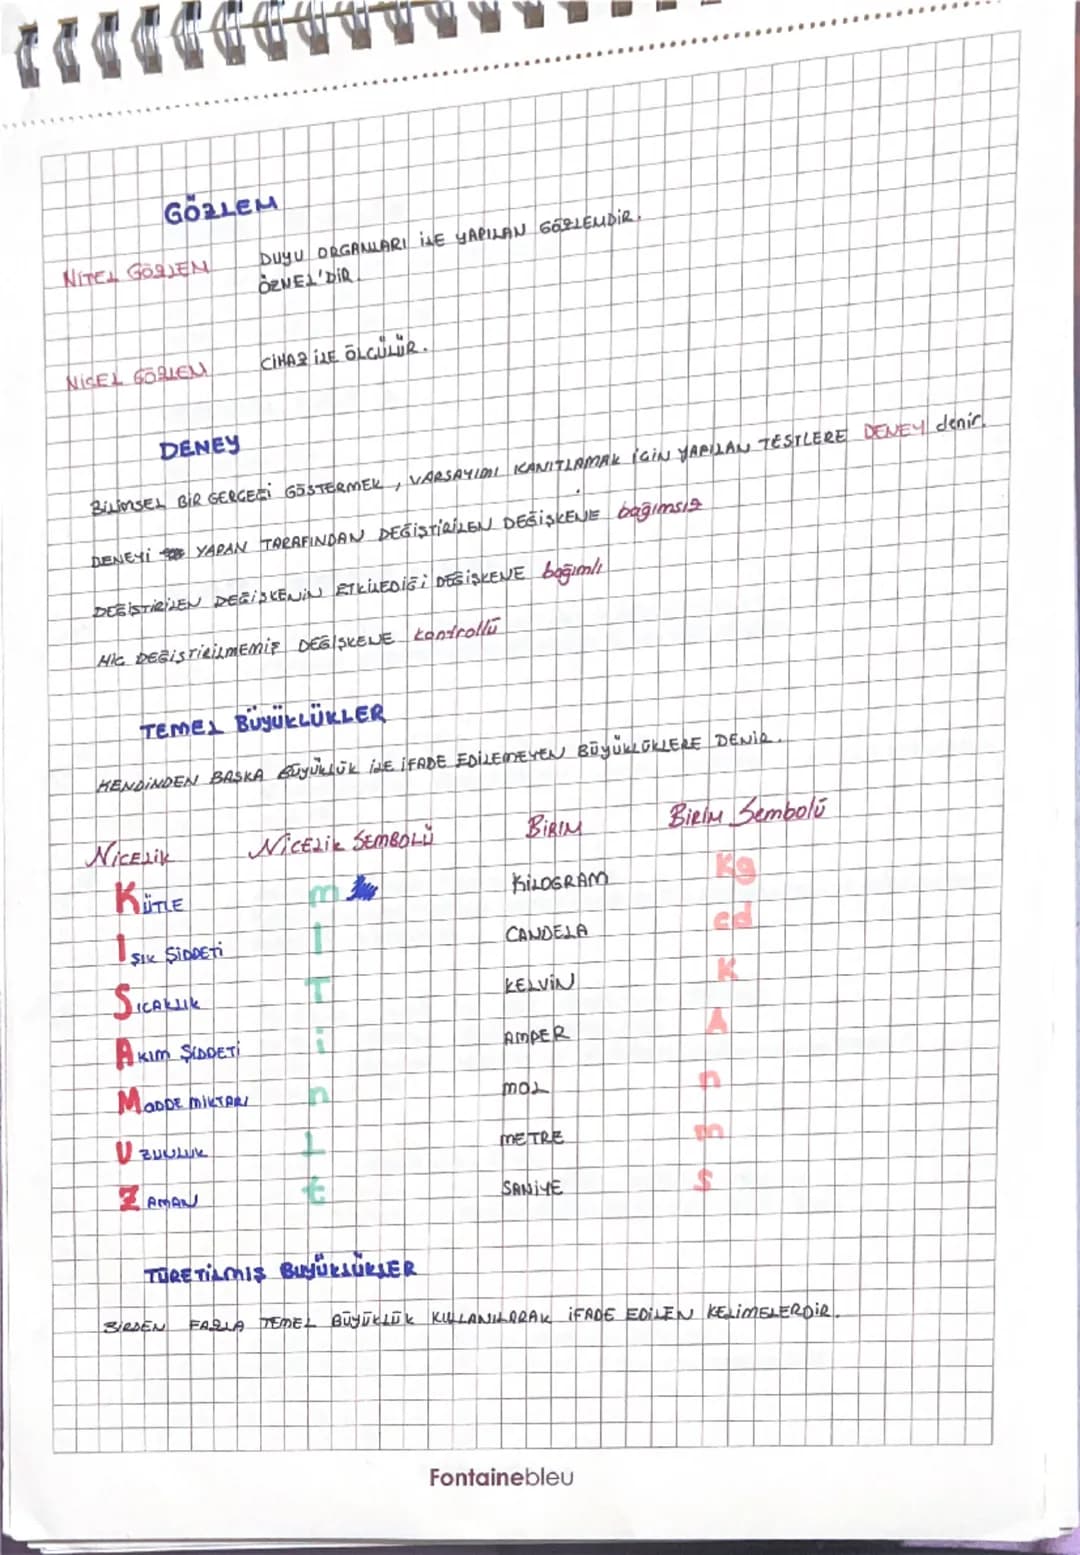 GÖZLEM
NİTEL GÖZLEM DUYU ORGANLARI İLE YAPILAN GÖZLEMDİR.
ÖZNEL'DİR.
NİCEL GÖZLEM CİHAZ İLE ÖLÇÜLÜR.
DENEY
BİLİMSEL BİR GERÇEĞİ GÖSTERMEK, VARSAYIMI KANITLAMAK İÇİN YAPILAN TESTLERE DENEY denir.
DENEYİ YAPAN TARAFINDAN DEĞİŞTİRİLEN DEĞİŞKENE bağımsız
DEĞİŞTİRİLEN DEĞİŞKENİN ETKİLEDİĞİ DEĞİŞKENE bağımlı
HİÇ DEĞİŞTİRİLMEMİŞ DEĞİŞKENE kontrollü
TEMEL BÜYÜKLÜKLER
KENDİNDEN BAŞKA BÜYÜKLÜK İLE İFADE EDİLEMEYEN BÜYÜKLÜKLERE DENİR.
NİCELİK NİCELİK SEMBOLÜ BİRİM BİRİM Sembolü
KÜTLE m KİLOGRAM Kg
IŞIK ŞİDDETİ I CANDELA cd
SICAKLIK T KELVİN K
AKIM ŞİDDETİ i AMPER A
MADDE MİKTARI n MOL n
UZUNLUK L METRE m
ZAMAN t SANİYE s
TÜRETİLMİŞ BÜYÜKLÜKLER
BİRDEN FAZLA TEMEL BÜYÜKLÜK KULLANILARAK İFADE EDİLEN KELİMELERDİR.
Fontainebleu